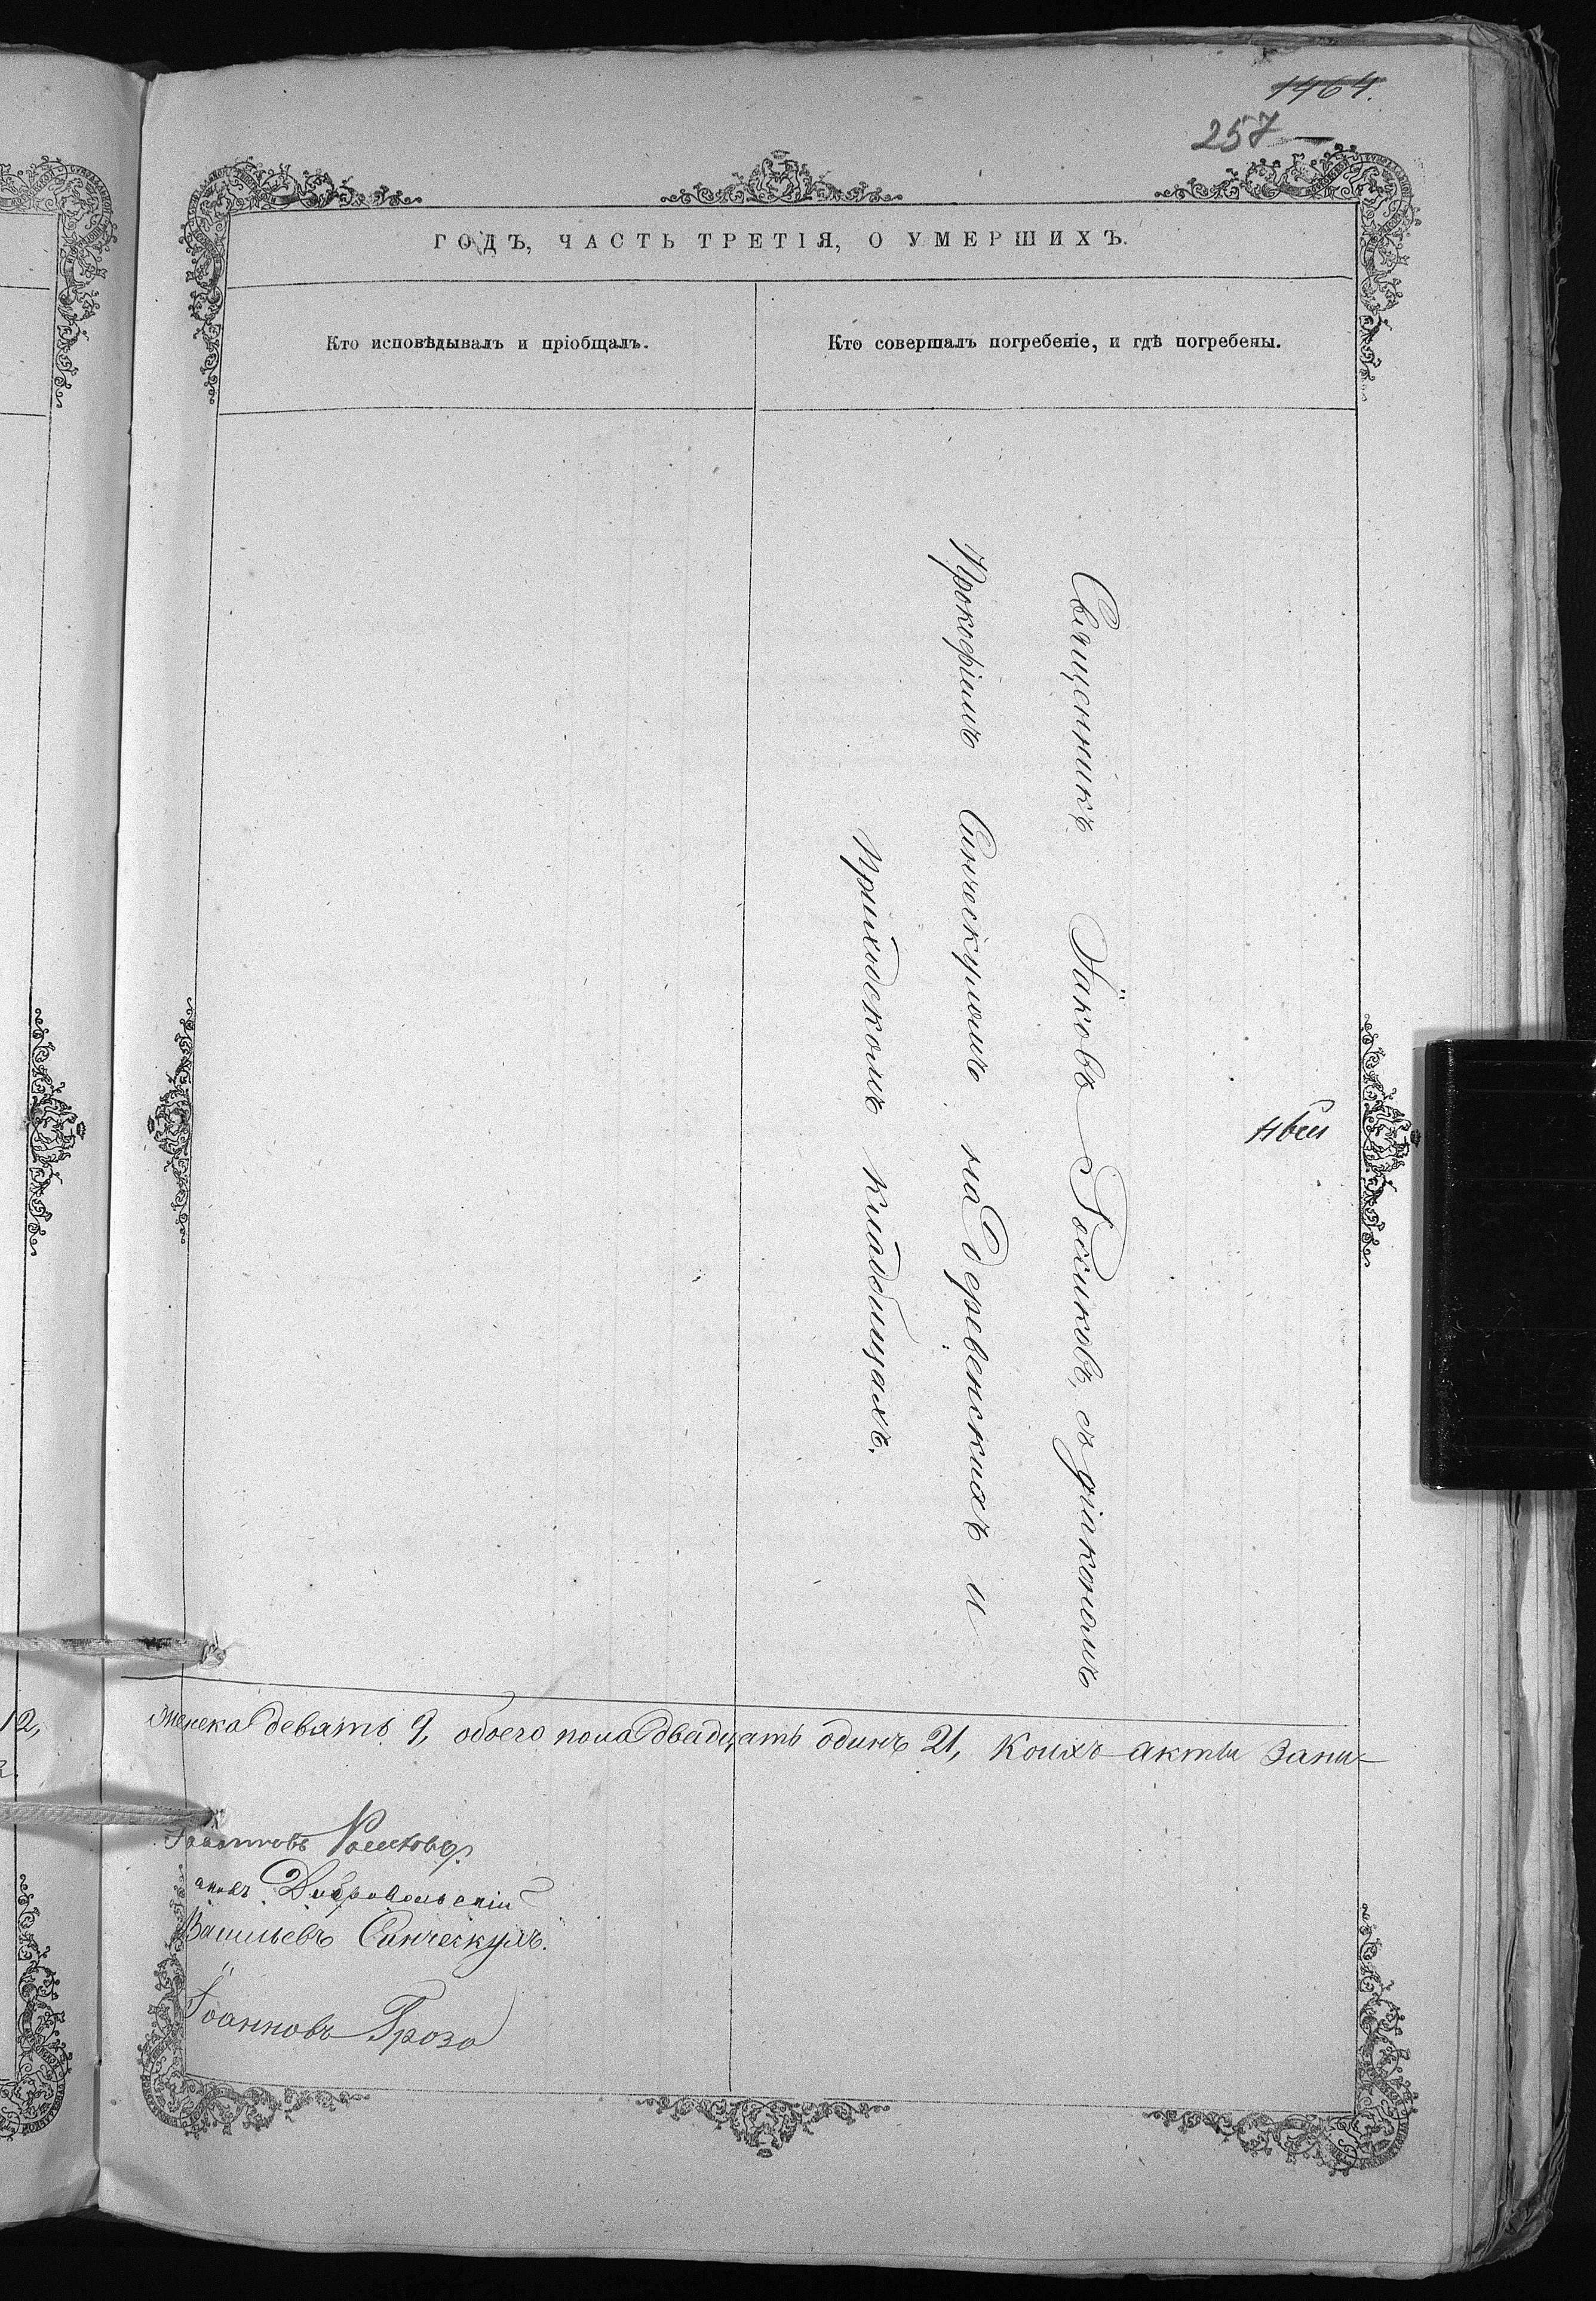 1464.
257
ГОДЪ, ЧАСТЬ ТРЕТІЯ, О УМЕРШИХЪ.
Кто исповѣдывалъ и пріобщалъ.
Кто совершалъ погребеніе, и гдѣ погребены.
Священникъ Іаковъ съ діакономъ
Прокофіимъ Синческуломъ на деревенскихъ и
приходскомъ кладбищахъ.
12,
женска девять 9, обоего пола двадцать одинъ 21, коихъ акты запи-
Добровольскій
Васильевъ Синческулъ.
Іоанновъ Гроза